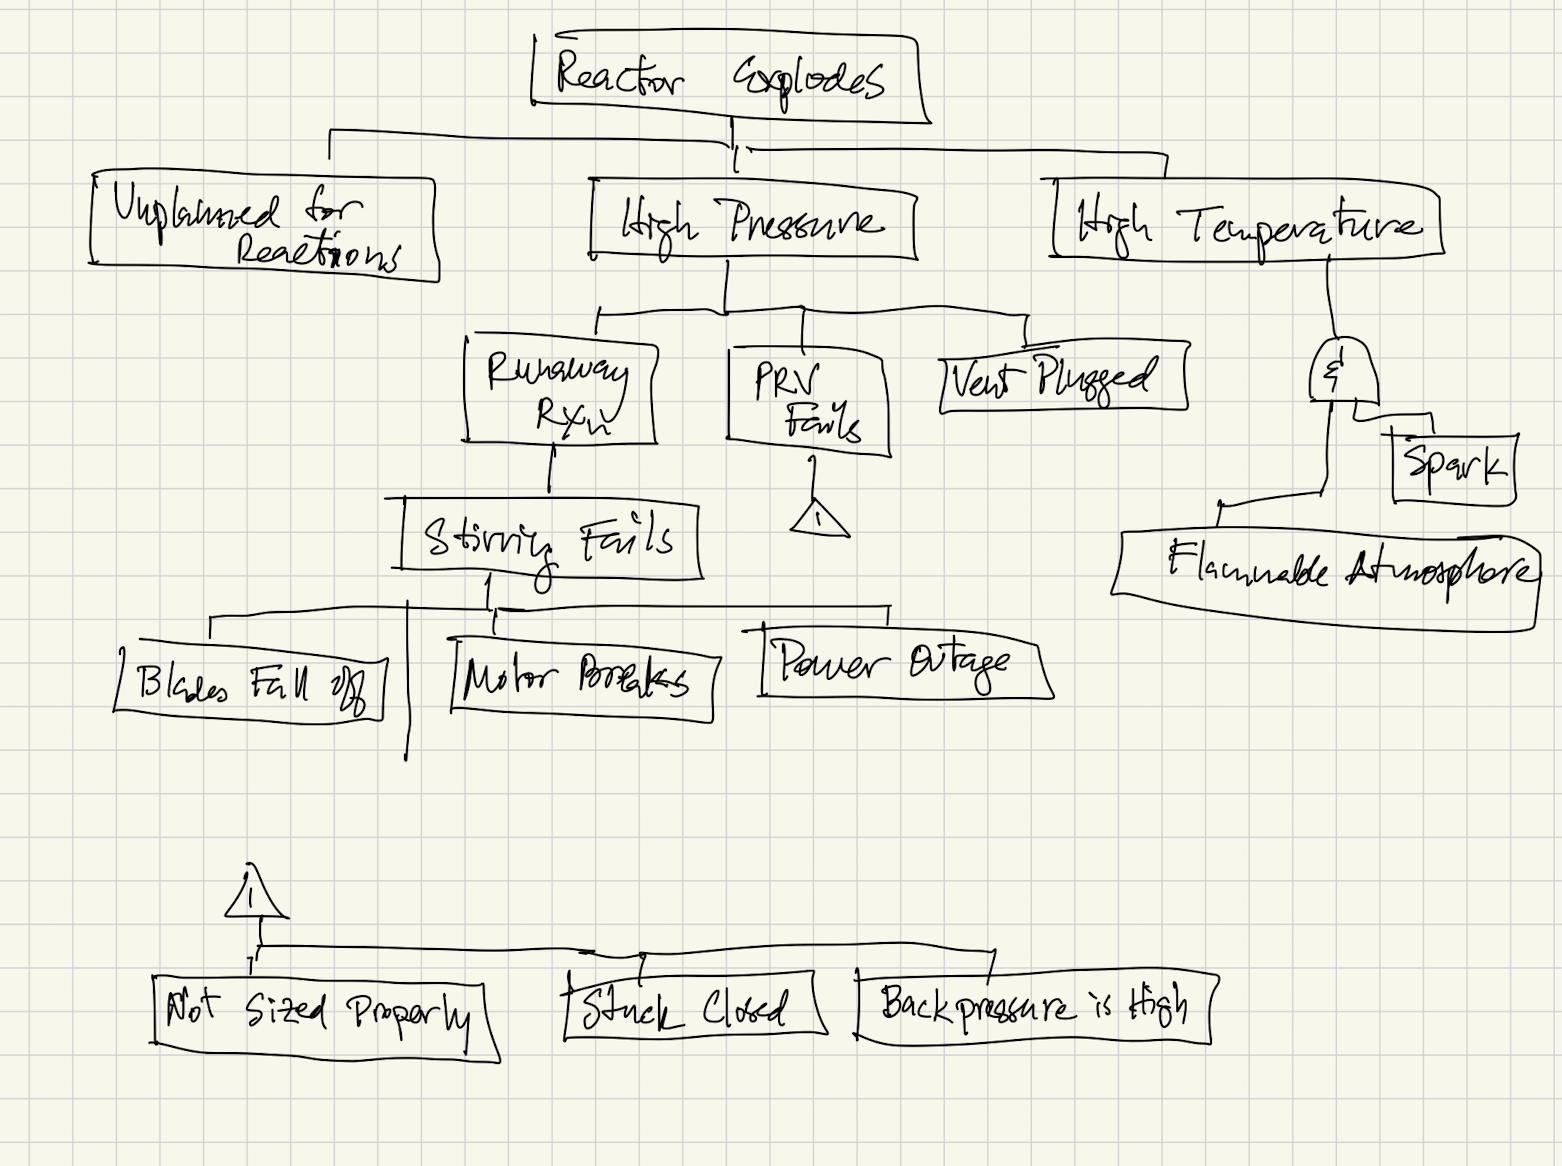 Reactor Explodes
Unplanned for
Reactions
High Pressure
High Temperature
Runaway
Rxn
PRV
Fails
Vent Plugged
&
Spark
1
Stirring Fails
Flammable Atmosphere
Blades Fall off
Motor Breaks
Power Outage
1
Not Sized Properly
Stuck Closed
Backpressure is High